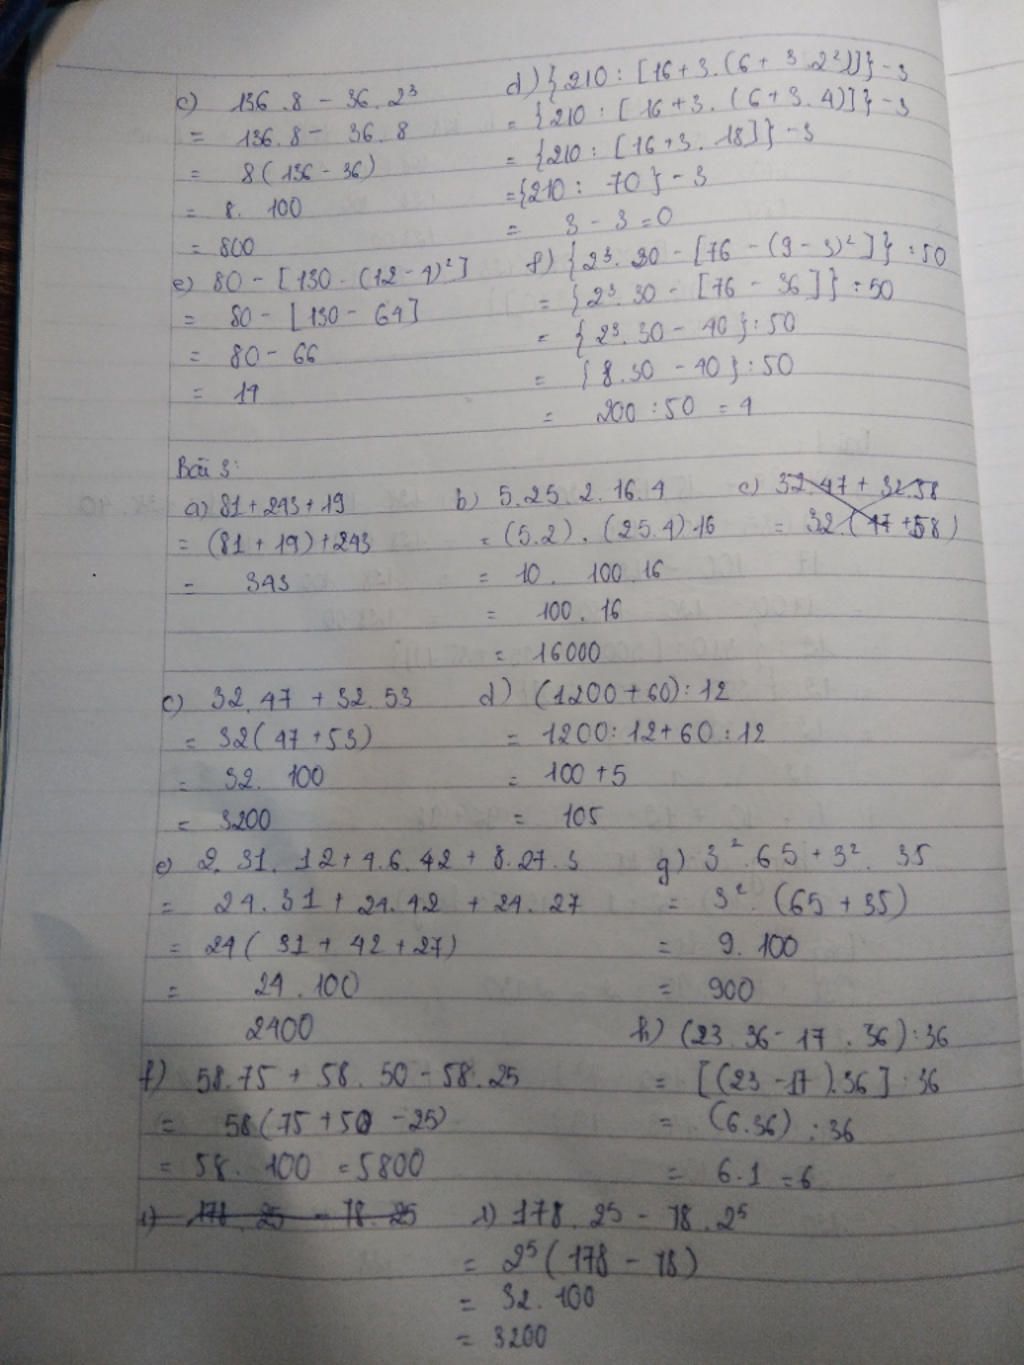 c) 136.8 - 36.2³
= 136.8 - 36.8
= 8(136 - 36)
= 8. 100
= 800
d) {210 : [16+3.(6+ 3.2²)]} - 3
= {210 : [16+3. (6+3.4)]} - 3
= {210 : [16+3. 18]} - 3
= {210 : 70} - 3
= 3 - 3 = 0
e) 80 - [130 - (12-4)²]
= 80 - [130 - 64]
= 80 - 66
= 14
f) {2³.30 - [76 - (9-3)²]} : 50
= {2³.30 - [76 - 36]} : 50
= {2³.30 - 40} : 50
= {8.30 - 40} : 50
= 200 : 50 = 4
Bài 3:
a) 81+243+19
= (81+19)+243
= 343
b) 5.25.2.16.4
= (5.2).(25.4)16
= 10. 100.16
= 100.16
= 16000
c) 32.47 + 32.58
= 32.(47+58)
c) 32.47 + 32.53
= 32(47+53)
= 32. 100
= 3200
d) (1200+60):12
= 1200:12+60:12
= 100+5
= 105
e) 2.31.12+4.6.42+8.27.3
= 24.31+24.42+24.27
= 24(31+42+27)
= 24.100
2400
g) 3².65+3².35
= 3².(65+35)
= 9.100
= 900
f) 58.75+58.50-58.25
= 58(75+50-25)
= 58. 100 = 5800
h) (23.36-17.36):36
= [(23-17).36]:36
= (6.36):36
= 6.1 = 6
i) 178.25 - 78.25
i) 178.2⁵ - 78.2⁵
= 2⁵(178-78)
= 32.100
= 3200